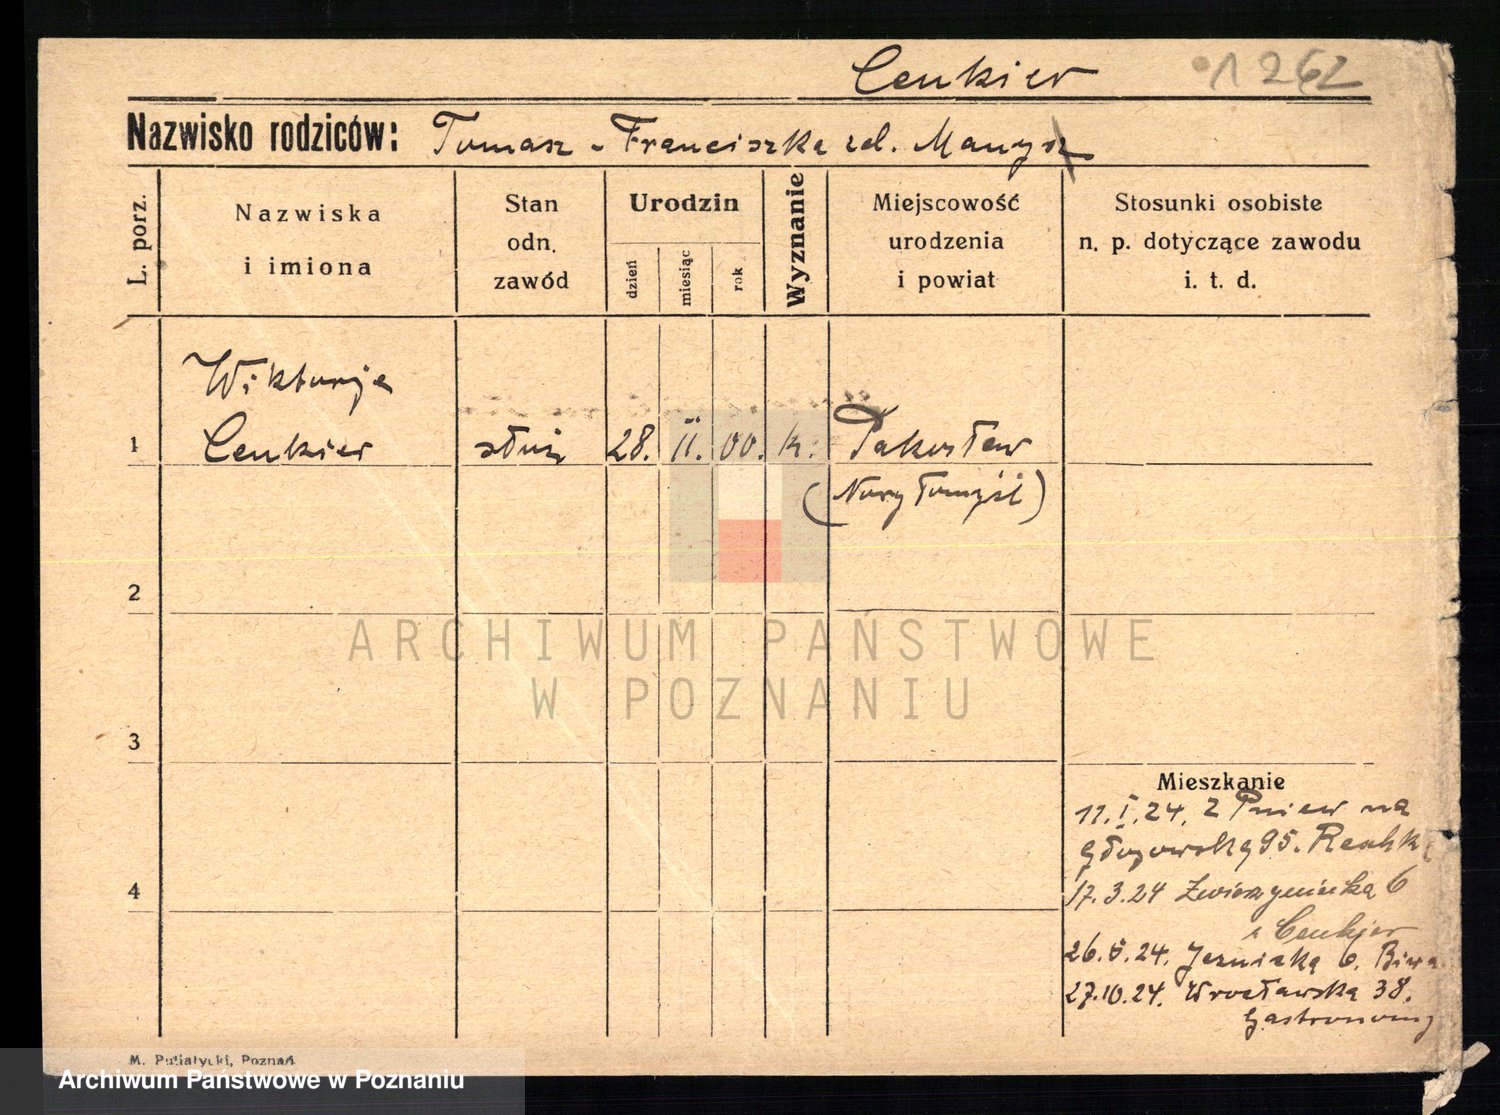 Cenkier 1262
Nazwisko rodziców: Tomasz - Franciszka zd. Manysz
L. porz.
Nazwiska
i imiona
Stan
odn.
zawód
Urodzin
dzień
miesiąc
rok
Wyznanie
Miejscowość
urodzenia
i powiat
Stosunki osobiste
n. p. dotyczące zawodu
i. t. d.
Wiktorja
1 Cenkier służ 28. II. 00. k. Pakosław
(Nowy Tomyśl)
2
3
4
ARCHIWUM PAŃSTWOWE
W POZNANIU
Mieszkanie
11. I. 24. Z Pniew na
Głogowską 95.
17. 3. 24 Zwierzyniecka 6
Cenkier
26. 5. 24. Jezuicka 6.
27. 10. 24. Wrocławska 38.
M. Putiatycki, Poznań
Archiwum Państwowe w Poznaniu